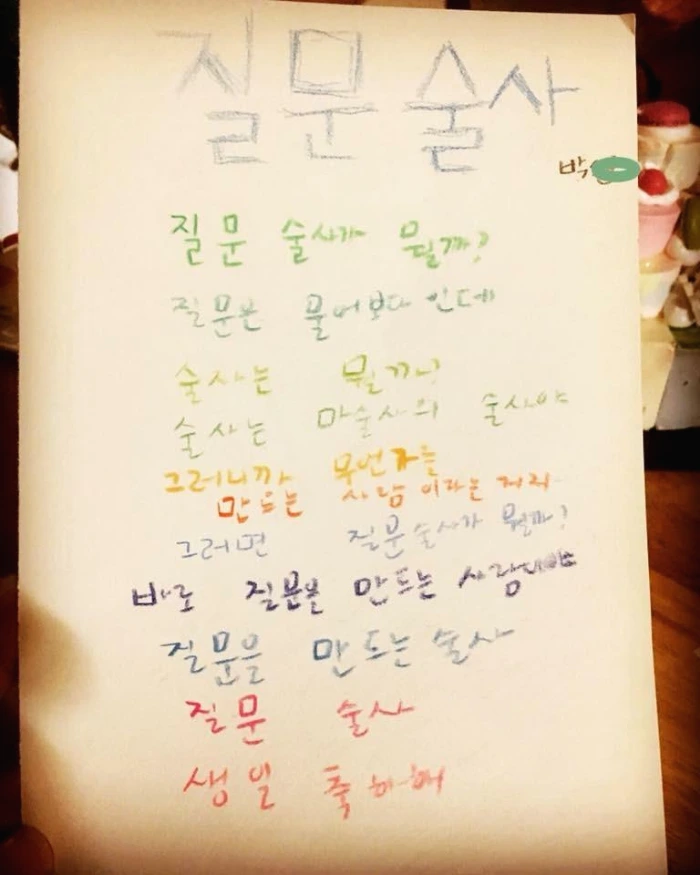 질문 술사
박
질문 술사가 뭘까?
질문은 물어보다 인데
술사는 뭘까?
술사는 마술사의 술사야
그러니까 무언가를
만드는 사람 이라는 거지
그러면 질문술사가 뭘까?
바로 질문은 만드는 사람이야
질문을 만드는 술사
질문 술사
생일 축하해